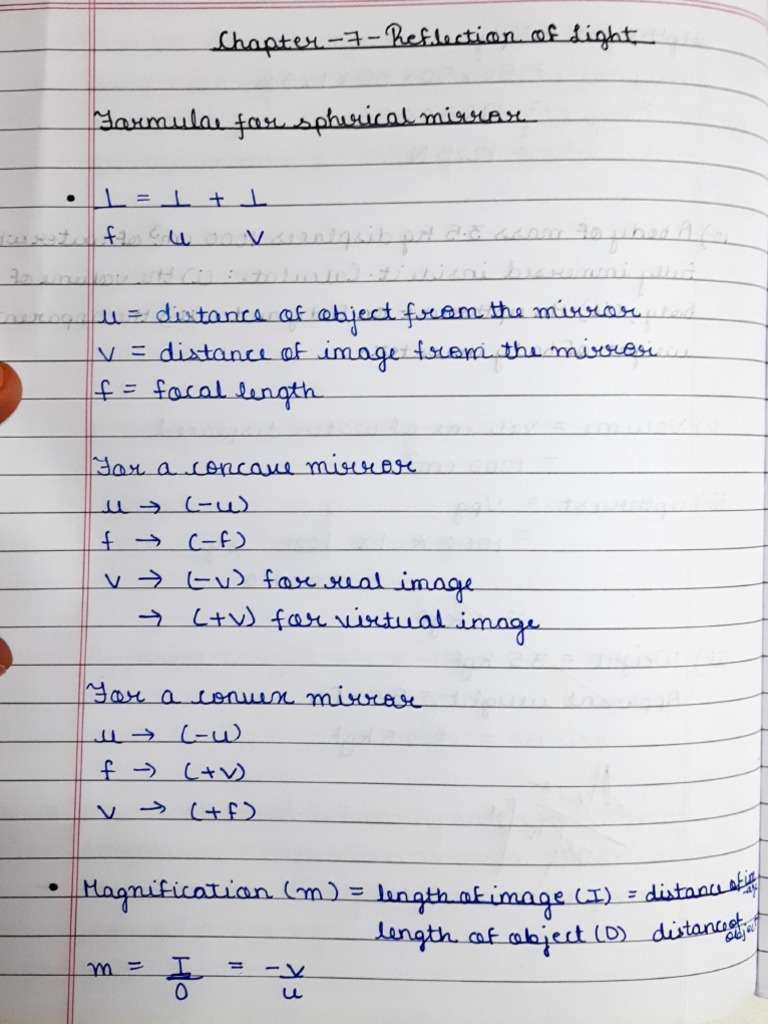 Chapter-7-Reflection of Light
Formulae for spherical mirror
• 1/f = 1/u + 1/v
u = distance of object from the mirror
v = distance of image from the mirror
f = focal length
For a concave mirror
u → (-u)
f → (-f)
v → (-v) for real image
→ (+v) for virtual image
For a convex mirror
u → (-u)
f → (+v)
v → (+f)
• Magnification (m) = length of image (I) = distance of image
length of object (O) distance of object
m = I/O = -v/u